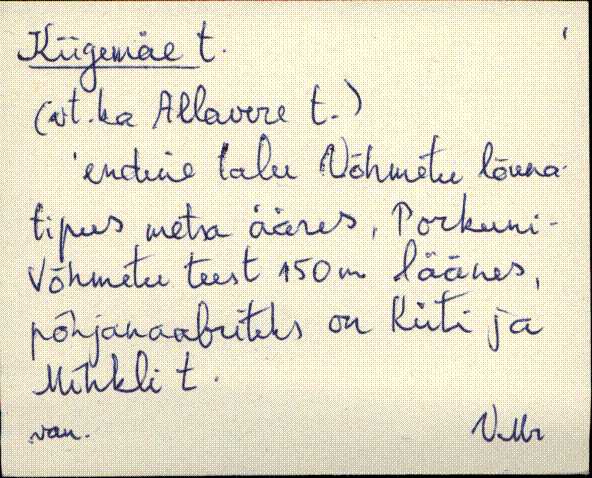 Kiigemäe t.
(vt. ka Allavere t.)
'endine talu Võhmetu lõuna-
tipus metsa ääres, Porkuni-
Võhmetu teest 150 m läänes,
põhjanaabriteks on Kiiti ja
Mihkli t.
van. VMr